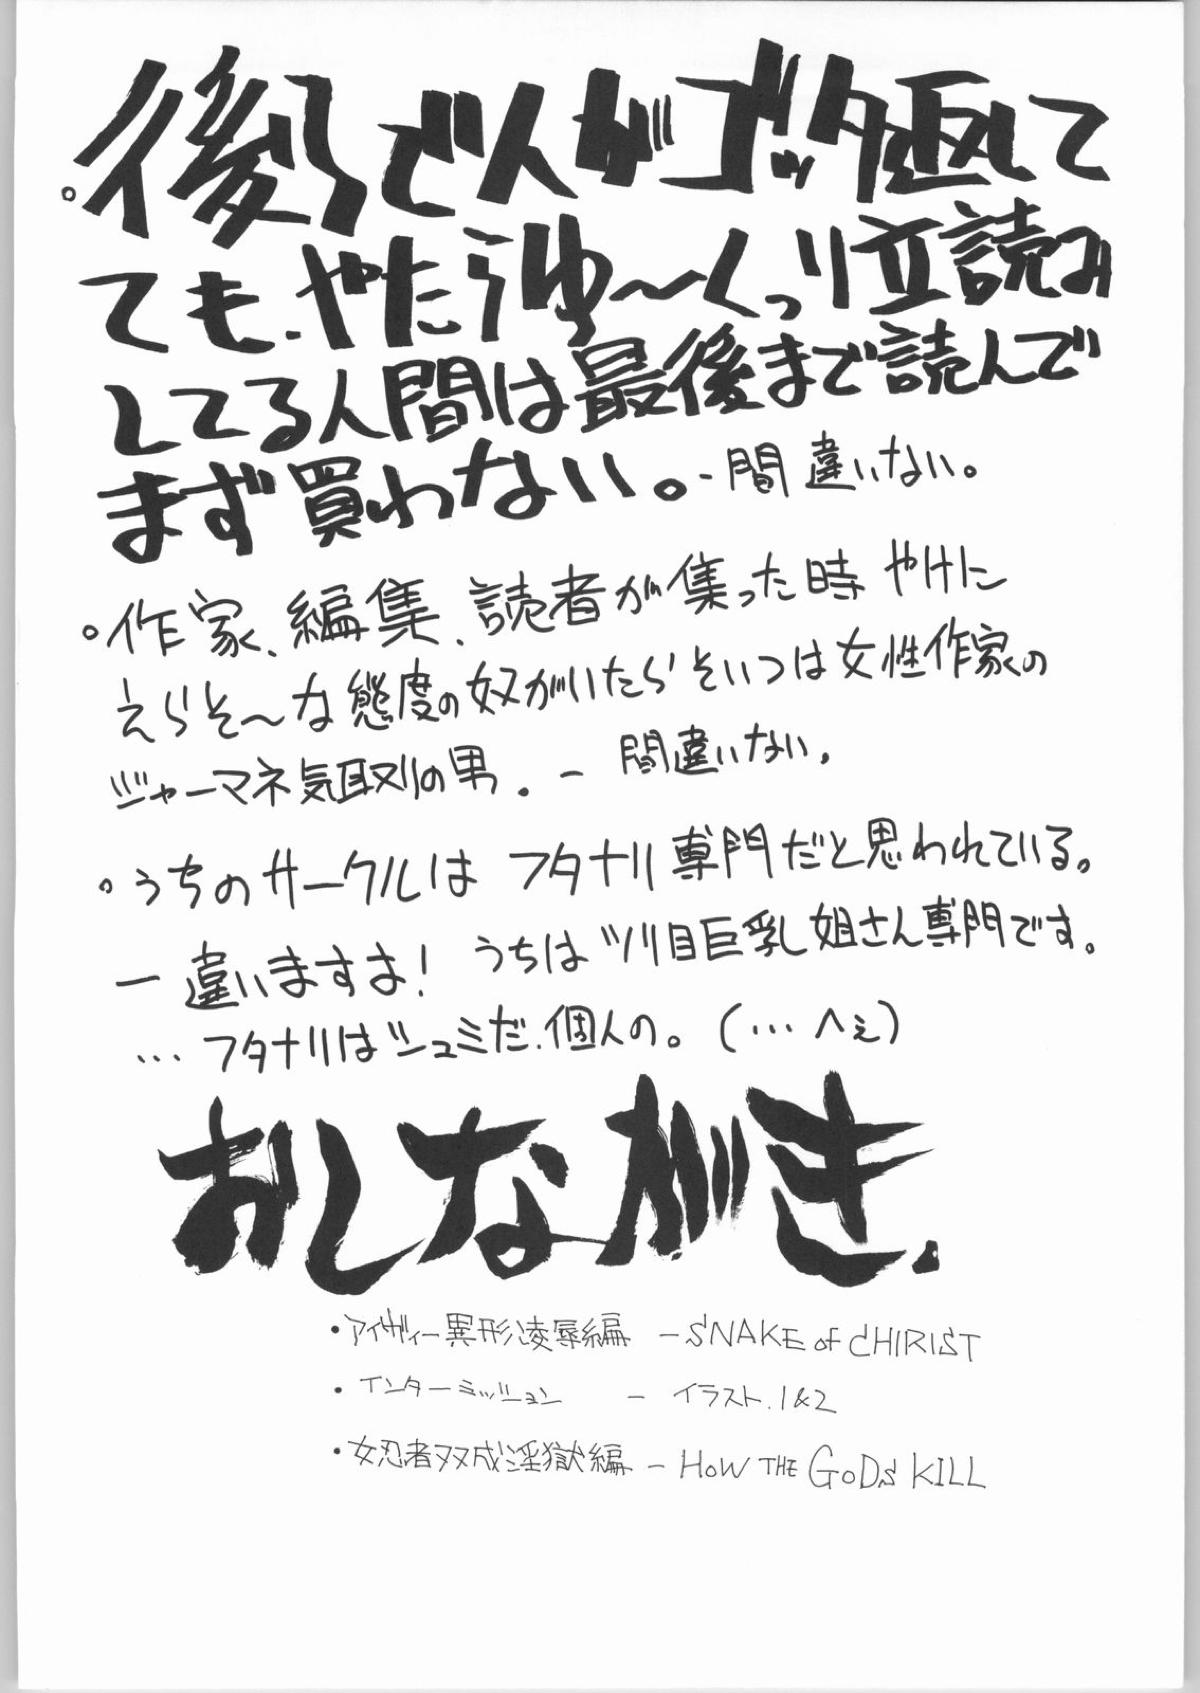 。後ろで人がゴッタ返して
ても、やたらゆ〜くっり立読み
してる人間は最後まで読んで
まず買わない。-間違いない。
。作家、編集、読者が集った時 やけに
えらそ〜な態度の奴がいたらそいつは女性作家の
ジャーマネ気取りの男。ー 間違いない。
。うちのサークルは フタナリ専門だと思われている。
ー 違いますよ! うちは ツリ目巨乳姐さん専門です。
… フタナリはシュミだ、個人の。(… へぇ)
おしながき。
・アイヴィー異形凌辱編 ー SNAKE of CHIRIST
・インターミッション ー イラスト.1&2
・女忍者双成淫獄編 ー HOW THE GODS KILL